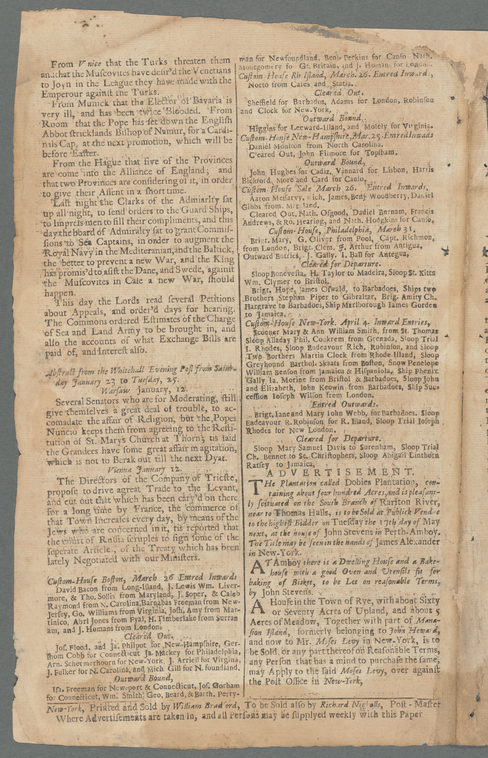 From Venice that the Turks threaten them
and that the Muscovites have desir'd the Venetians
to Joyn in the League they have made with the
Emperour against the Turks.
From Munick that the Elector of Bavaria is
very ill, and has been twice Blooded. From
Room that the Pope has set down the English
Abbot Stricklands Bishop of Namur, for a Cardi-
nals Cap, at the next promotion, which will be
before Easter.
From the Hague that five of the Provinces
are come into the Alliance of England; and
that two Provinces are considering of it, in order
to give their Assent in a short time.
Last night the Clarks of the Admiralty sat
up all night, to send orders to the Guard Ships,
to Impress men to fill their compliment, and this
day the board of Admiralty sat to grant Commis-
sions to Sea Captains, in order to augment the
Royal Navy in the Mediteranian and the Baltick,
the better to prevent a new War, and the King
has promis'd to assist the Dane, and Swede, against
the Muscovites in Case a new War, should
happen.
This day the Lords read several Petitions
about Appeals, and order'd days for hearing.
The Commons ordered Estimates of the Charge
of Sea and Land Army to be brought in, and
also the accounts of what Exchange Bills are
paid of, and Interest also.
Abstract from the Whitehall Evening Post from Satur-
day January 23 to Tuesday, 25.
Warsaw January, 12.
Several Senators who are for Moderating, still
give themselves a great deal of trouble, to ac-
comadate the affair of Religion, but the Popes
Nuncio keeps them from agreeing to the Resti-
tution of St. Marys Church at Thorn; tis said
the Grandees have some great affair in agitation,
which is not to Break out till the next Dyat.
Vienna January 12.
The Directors of the Company of Trieste,
propose to drive a great Trade to the Levant,
and cut out that which has been cary'd on there
for a long time by France, the commerce of
that Town Increases every day, by means of the
Jews who are concerned in it, tis reported that
the Court of Russia scruples to sign some of the
seperate Articles, of the Treaty which has been
lately Negotiated with our Ministers.
Custom-House Boston, March 26 Entred Inwards
David Bacon from Long-Island, J. Lewis Wm. Liver-
more, & Tho. Sollis from Maryland, J. Soper, & Caleb
Raymond from N. Carolina, Barnabas Freeman from New-
Jersey, Geo. Williams from Virginia, Josh. Amy from Mar-
tinico, Abri Jones from Fyal, H. Timberlake from Surran
am, and J. Homans from London.
Cleared Out.
Jos. Flood, and Ja. Philpot for New-Hampshire, Ger-
shom Cobb for Connecticut Ja. Mickey for Philadelphia,
Arn. Schermerhoorn for New-York, J. Arriell for Virgina,
J. Fulker for N. Carolina, and Rich Gill for N. foundland.
Outward Bound,
Isr. Freeman for Newport & Connecticut, Jos. Gorham
for Connecticut, Wm. Smith, Geo, Beard, & Barth. Perry-
man for Newfoundland, Benj. Perkins for Canso Nath.
Montgomery for Gt. Britain, and J. Homans for London.
Custom House Rh Island, March, 26. Entred Inward,
Norto from Cales and Statia.
Cleared Out.
Sheffield for Barbados, Adams for London, Robinson
and Clock for New-York.
Outward Bound.
Higgins for Leeward-Island, and Mosely for Virginia.
Custom-House New-Hampshire, Mar. 25 Entred Inwards
Daniel Moniton from North Carolina.
Cleared Out, John Flimore for Topsham.
Outward Bound,
John Hughes for Cadiz, Vinnard for Lisbon, Harris
Bicknord, More and Card for Canso,
Custom-House Sale March 26. Entred Inwards,
Aaron Messarvy, Rich, James, Benj Woodberry, Daniel
Gibbs from Maryland,
Cleared Out, Nath, Osgood, Daniel Bernant, Francis
Andrews, & Ro, Hearing, and Nath, Hodgkins for Canso,
Custom-House, Philadelphia, March 31,
Brigt. Mary, G. Oliver from Pool, Capt, Richmon,
from London, Brigt. Clem. F. Arthur from Antigua,
Outward Entries, J. Gally. I. Ball for Antegua,
Cleared for Departure.
Sloop Bonevista, H. Taylor to Madeira, Sloop St. Kitts
Wm. Clymer to Bristol.
Brigt. Hope, James Oswald, to Barbadoes, Ships two
Brothers Stephan Piper to Gibraltar, Brig. Amity Ch.
Hargrave to Barbadoes, Ship Marlborough James Gorden
to Jamaica.
Custom-House New-York. April 4. Inward Entries,
Scooner Mary & Ann William Smith, from St. Thomas
Sloop Alladay Phil, Cockrem from Grenada, Sloop Trial
J. Rhodes, Sloop Endeavour Rich, Robinson, and Sloop
Two Borthers Martin Clock from Rhode-Island, Sloop
Greyhound Barthol. Skaats from Boston, Snow Penelope
William Benson from Jamaica & Hispaniola, Ship Phenix
Gally Ia. Morine from Bristol & Barbadoes, Sloop John
and Elisabeth, John Keowin from Barbadoes, Ship Suc-
cession Joseph Wilson from London.
Entred Outwards.
Brigt. Iane and Mary John Webb, for Barbadoes. Sloop
Endeavour R. Robinson for R. Island, Sloop Trial Joseph
Rhodes for New London.
Cleared for Departure.
Sloop Mary Samuel Davis to Surenham, Sloop Trial
Ch. Bennet to St. Christophers, Sloop Abigail Linthorn
Ratsey to Jamaica,
ADVERTISEMENT.
The Plantation called Dobies Plantation, con-
taining about four hundred Acres, and is pleasant-
ly scituated on the South Branch of Rariton River,
near to Thomas Halls, is to be Sold at Publick Vendue
to the highest Bidder on Tuesday the 17th day of May
next, at the house of John Stevens in Perth-Amboy.
The Title may be seen in the hands of James Alexander
in New-York.
AT Amboy there is a Dwelling House and a Bake-
house with a good Oven and Utensils fit for
baking of Bisket, to be Let on reasonable Terms,
by John Stevens.
A House in the Town of Rye, with about Sixty
or Seventy Acres of Upland, and about 5
Acres of Meadow, Together with part of Mana-
sian Island, formerly belonging to John Heward,
and now to Mr. Moses Levy in New-York, is to
be Sold, or any part thereof on Reasonable Terms,
any Person that has a mind to purchase the same,
may Apply to the said Moses Levy, over against
the Post Office in New-York,
New-York, Printed and Sold by William Bradford, To be Sold also by Richard Nicholls, Post-Master
Where Advertisements are taken in, and all Persons may be supplyed weekly with this Paper